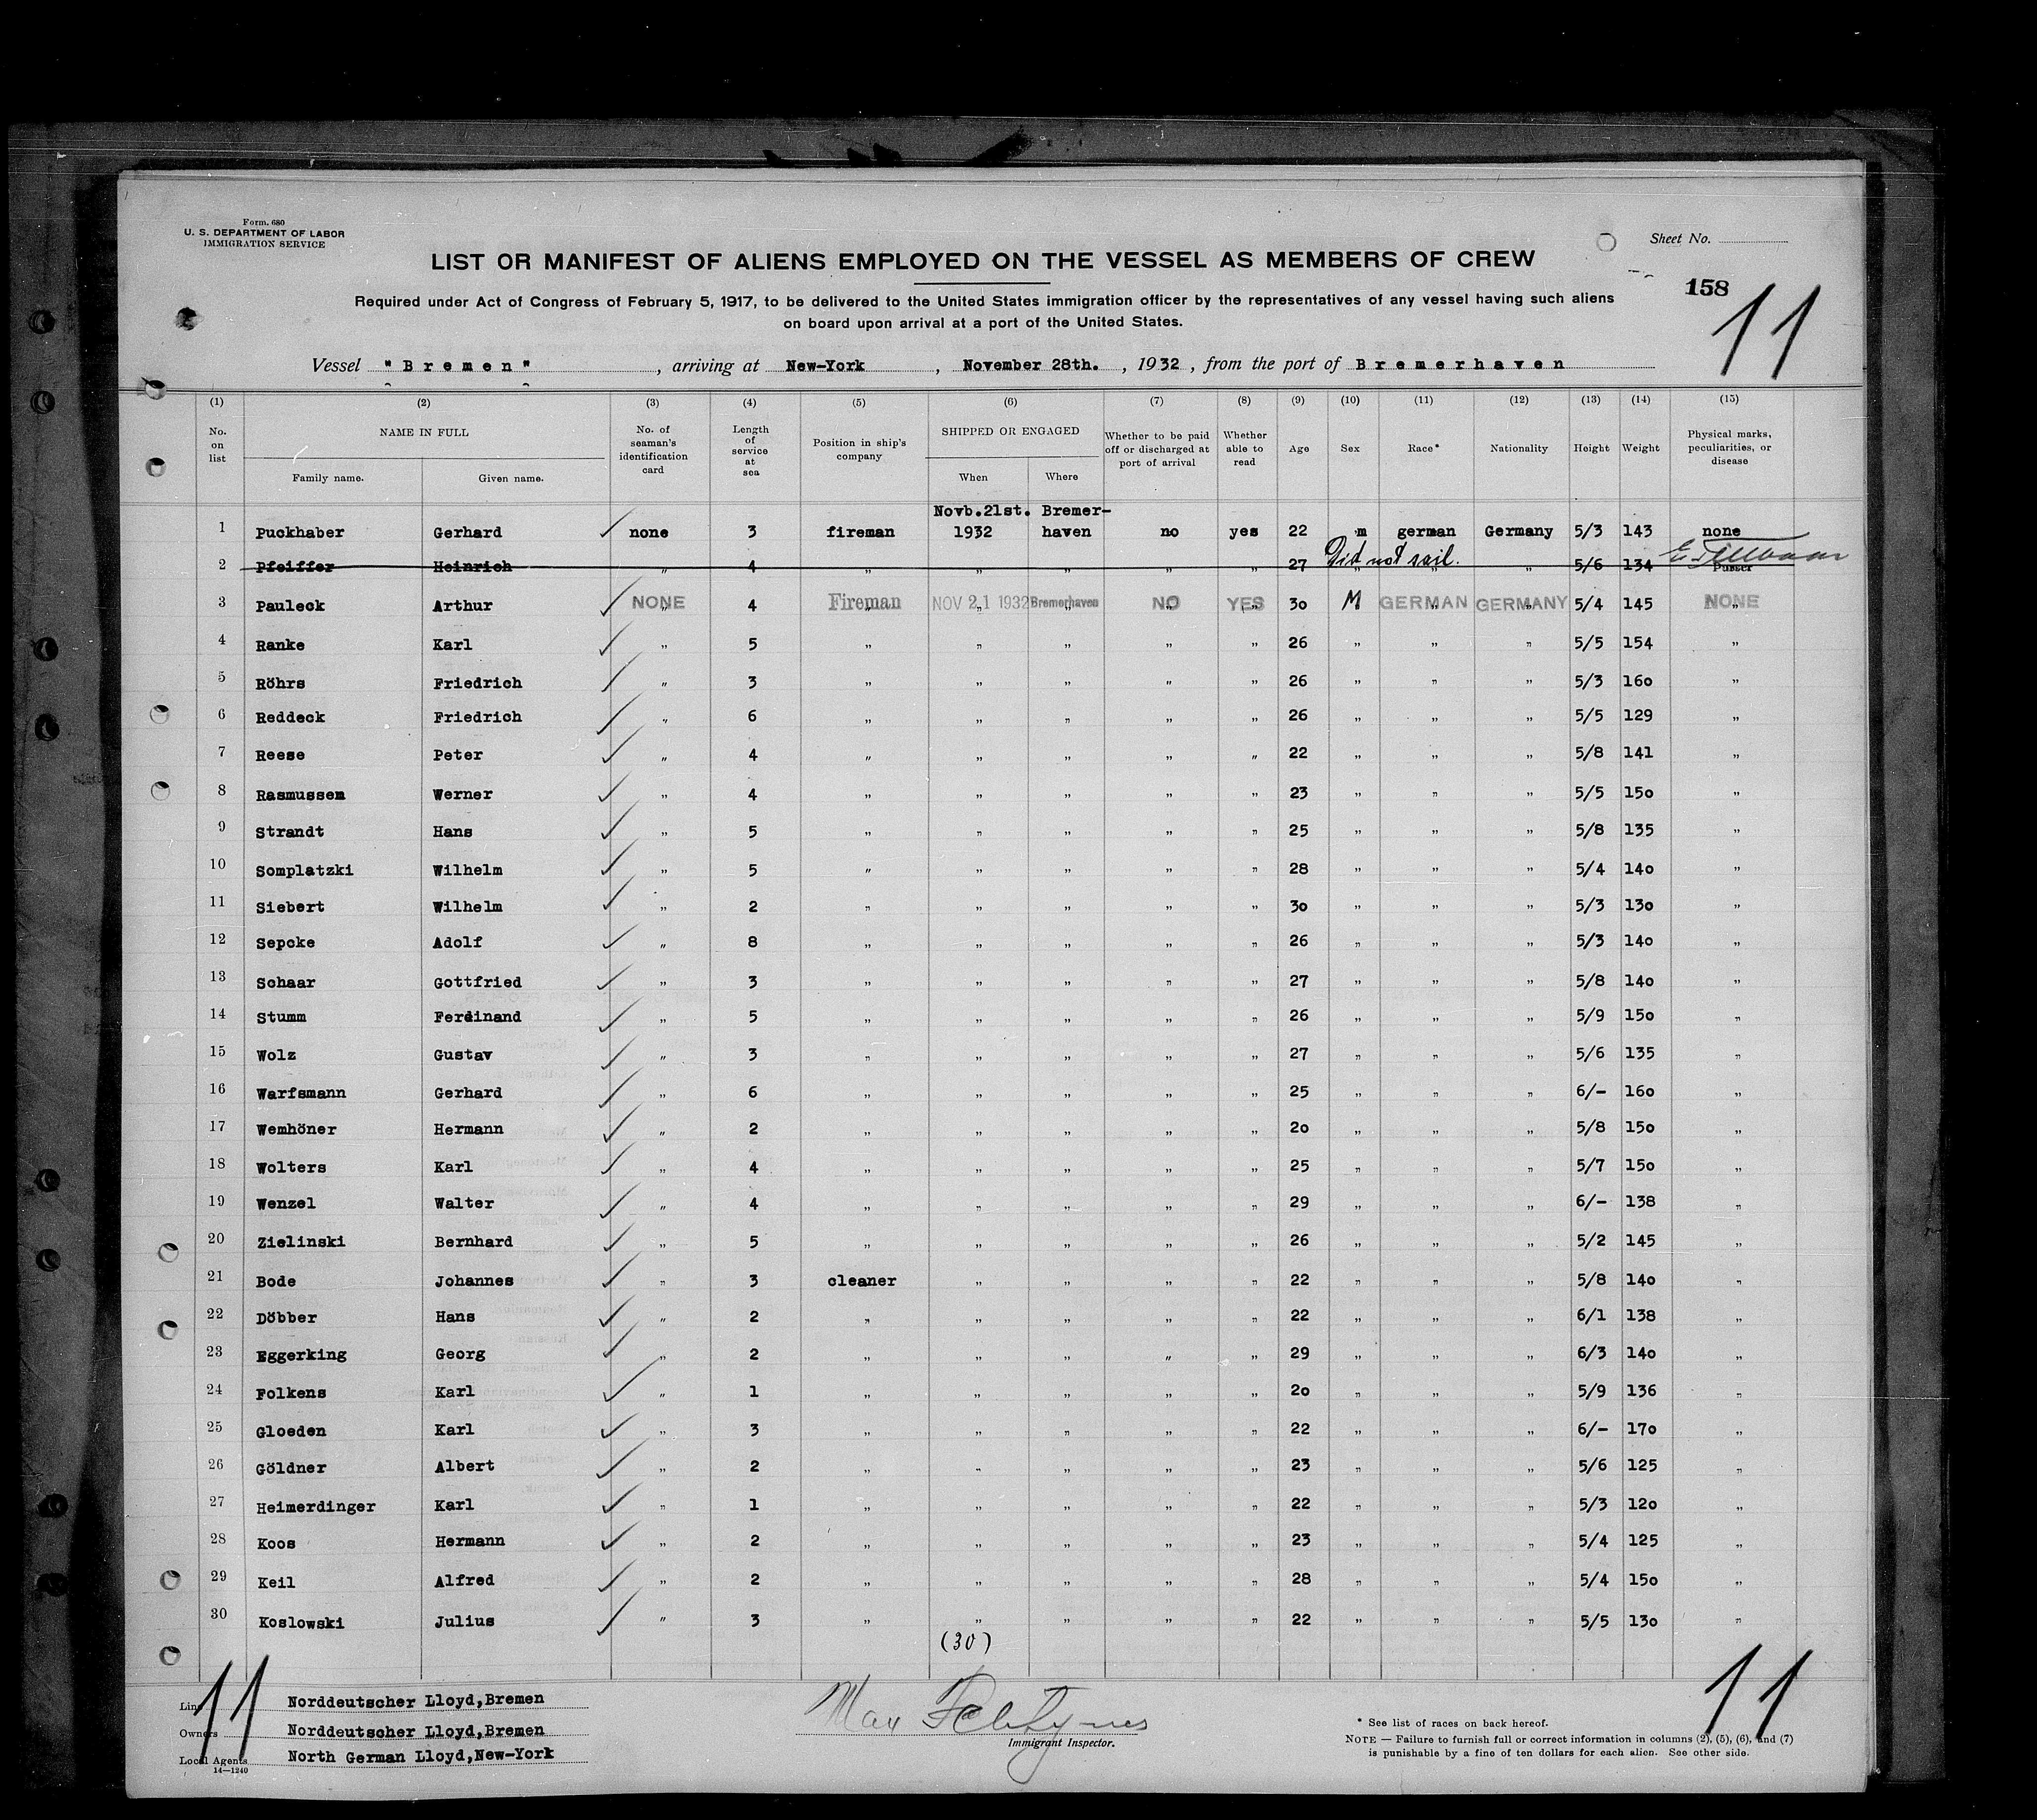 Form. 680
U. S. DEPARTMENT OF LABOR
IMMIGRATION SERVICE
Sheet No.
LIST OR MANIFEST OF ALIENS EMPLOYED ON THE VESSEL AS MEMBERS OF CREW
158
11
Required under Act of Congress of February 5, 1917, to be delivered to the United States immigration officer by the representatives of any vessel having such aliens
on board upon arrival at a port of the United States.
Vessel "Bremen", arriving at New-York, November 28th., 1932, from the port of Bremerhaven
(1) (2) (3) (4) (5) (6) (7) (8) (9) (10) (11) (12) (13) (14) (15)
No. on list NAME IN FULL Family name. Given name. No. of seaman's identification card Length of service at sea Position in ship's company SHIPPED OR ENGAGED When Where Whether to be paid off or discharged at port of arrival Whether able to read Age Sex Race* Nationality Height Weight Physical marks, peculiarities, or disease
Novb.21st. Bremer-
1 Puckhaber Gerhard ✓ none 3 fireman 1932 haven no yes 22 m german Germany 5/3 143 none
2 Pfeiffer Heinrich „ 4 „ „ „ „ „ 27 Did not sail. „ „ „ 5/6 134 Purser
3 Pauleck Arthur ✓ NONE 4 Fireman NOV 21 1932 Bremerhaven NO YES 30 M GERMAN GERMANY 5/4 145 NONE
4 Ranke Karl ✓ „ 5 „ „ „ „ „ 26 „ „ „ 5/5 154 „
5 Röhrs Friedrich ✓ „ 3 „ „ „ „ „ 26 „ „ „ 5/3 160 „
6 Reddeck Friedrich ✓ „ 6 „ „ „ „ „ 26 „ „ „ 5/5 129 „
7 Reese Peter ✓ „ 4 „ „ „ „ „ 22 „ „ „ 5/8 141 „
8 Rasmussen Werner ✓ „ 4 „ „ „ „ „ 23 „ „ „ 5/5 150 „
9 Strandt Hans ✓ „ 5 „ „ „ „ „ 25 „ „ „ 5/8 135 „
10 Somplatzki Wilhelm ✓ „ 5 „ „ „ „ „ 28 „ „ „ 5/4 140 „
11 Siebert Wilhelm ✓ „ 2 „ „ „ „ „ 30 „ „ „ 5/3 130 „
12 Sepcke Adolf ✓ „ 8 „ „ „ „ „ 26 „ „ „ 5/3 140 „
13 Schaar Gottfried ✓ „ 3 „ „ „ „ „ 27 „ „ „ 5/8 140 „
14 Stumm Ferdinand ✓ „ 5 „ „ „ „ „ 26 „ „ „ 5/9 150 „
15 Wolz Gustav ✓ „ 3 „ „ „ „ „ 27 „ „ „ 5/6 135 „
16 Warfsmann Gerhard ✓ „ 6 „ „ „ „ „ 25 „ „ „ 6/- 160 „
17 Wemhöner Hermann ✓ „ 2 „ „ „ „ „ 20 „ „ „ 5/8 150 „
18 Wolters Karl ✓ „ 4 „ „ „ „ „ 25 „ „ „ 5/7 150 „
19 Wenzel Walter ✓ „ 4 „ „ „ „ „ 29 „ „ „ 6/- 138 „
20 Zielinski Bernhard ✓ „ 5 „ „ „ „ „ 26 „ „ „ 5/2 145 „
21 Bode Johannes ✓ „ 3 cleaner „ „ „ „ 22 „ „ „ 5/8 140 „
22 Döbber Hans ✓ „ 2 „ „ „ „ „ 22 „ „ „ 6/1 138 „
23 Eggerking Georg ✓ „ 2 „ „ „ „ „ 29 „ „ „ 6/3 140 „
24 Folkens Karl ✓ „ 1 „ „ „ „ „ 20 „ „ „ 5/9 136 „
25 Gloeden Karl ✓ „ 3 „ „ „ „ „ 22 „ „ „ 6/- 170 „
26 Göldner Albert ✓ „ 2 „ „ „ „ „ 23 „ „ „ 5/6 125 „
27 Heimerdinger Karl ✓ „ 1 „ „ „ „ „ 22 „ „ „ 5/3 120 „
28 Koos Hermann ✓ „ 2 „ „ „ „ „ 23 „ „ „ 5/4 125 „
29 Keil Alfred ✓ „ 2 „ „ „ „ „ 28 „ „ „ 5/4 150 „
30 Koslowski Julius ✓ „ 3 „ „ „ „ „ 22 „ „ „ 5/5 130 „
(30)
11
11
Line Norddeutscher Lloyd,Bremen
Owners Norddeutscher Lloyd,Bremen
Local Agents North German Lloyd,New-York
14—1240
Max
Immigrant Inspector.
* See list of races on back hereof.
NOTE — Failure to furnish full or correct information in columns (2), (5), (6), and (7)
is punishable by a fine of ten dollars for each alien. See other side.